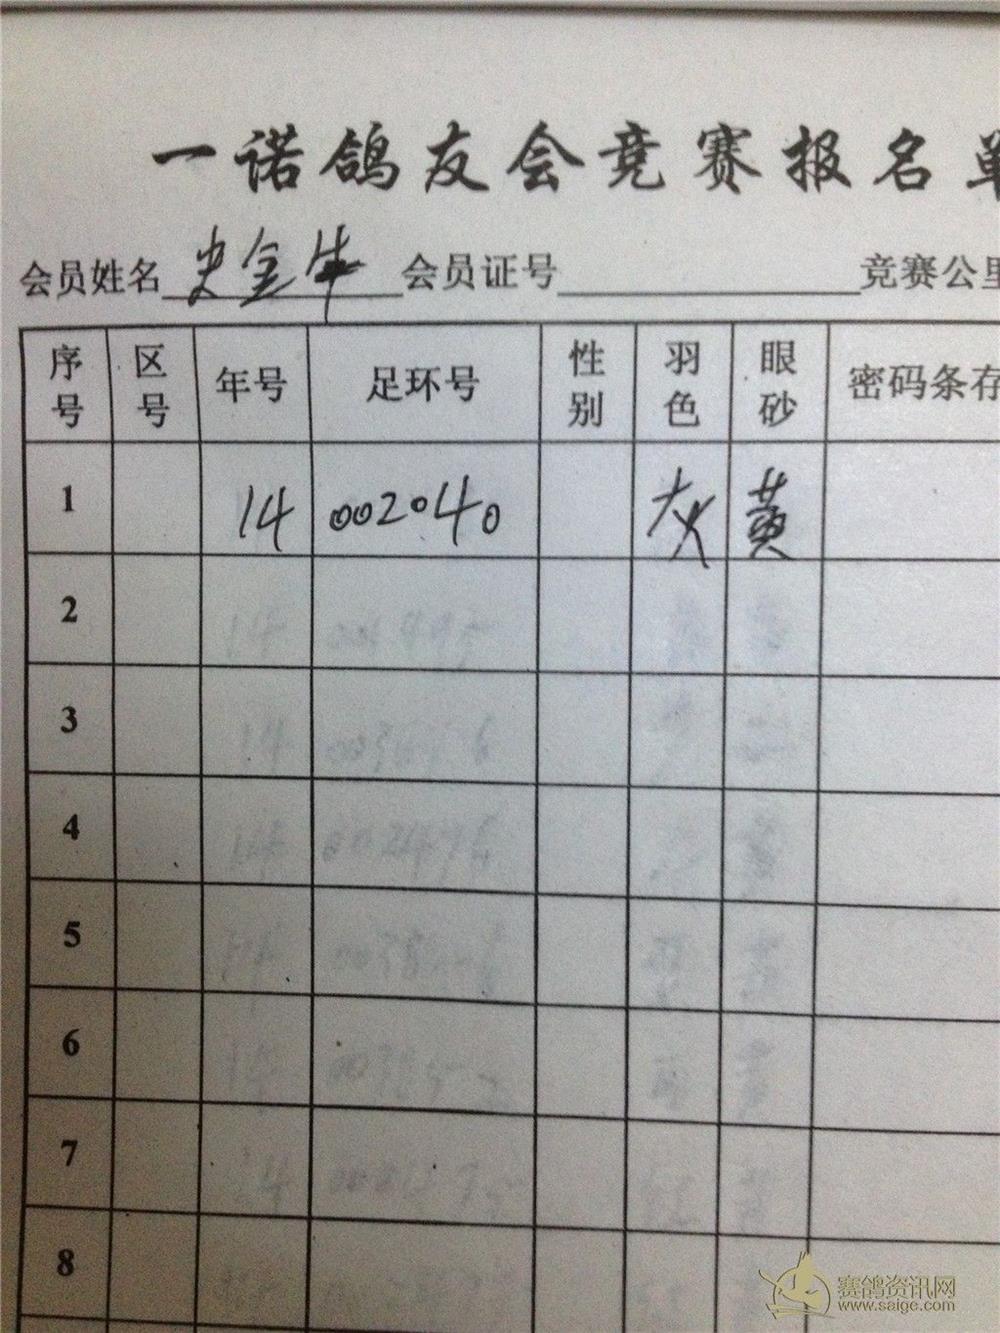 一诺鸽友会竞赛报名单
会员姓名 史金牛 会员证号 竞赛公里
序号 区号 年号 足环号 性别 羽色 眼砂 密码条存
1 14 002040 灰 黄
2
3
4
5
6
7
8
赛鸽资讯网
www.saige.com